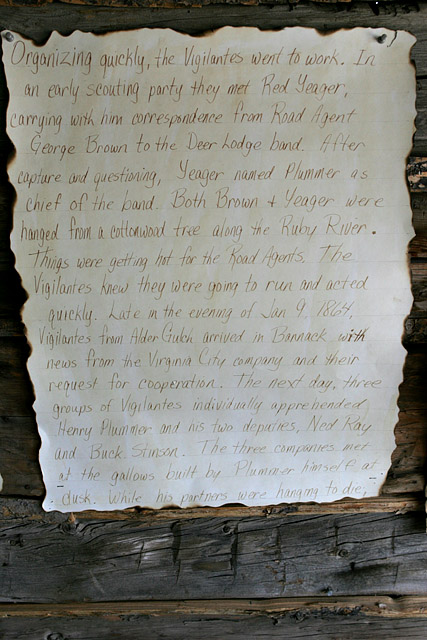 Organizing quickly, the Vigilantes went to work. In
an early scouting party they met Red Yeager,
carrying with him correspondence from Road Agent
George Brown to the Deer Lodge band. After
capture and questioning, Yeager named Plummer as
chief of the band. Both Brown + Yeager were
hanged from a cottonwood tree along the Ruby River.
Things were getting hot for the Road Agents. The
Vigilantes knew they were going to run and acted
quickly. Late in the evening of Jan 9. 1864,
Vigilantes from Alder Gulch arrived in Bannack with
news from the Virginia City company and their
request for cooperation. The next day, three
groups of Vigilantes individually apprehended
Henry Plummer and his two deputies, Ned Ray
and Buck Stinson. The three companies met
at the gallows built by Plummer himself at
dusk. While his partners were hanging to die,